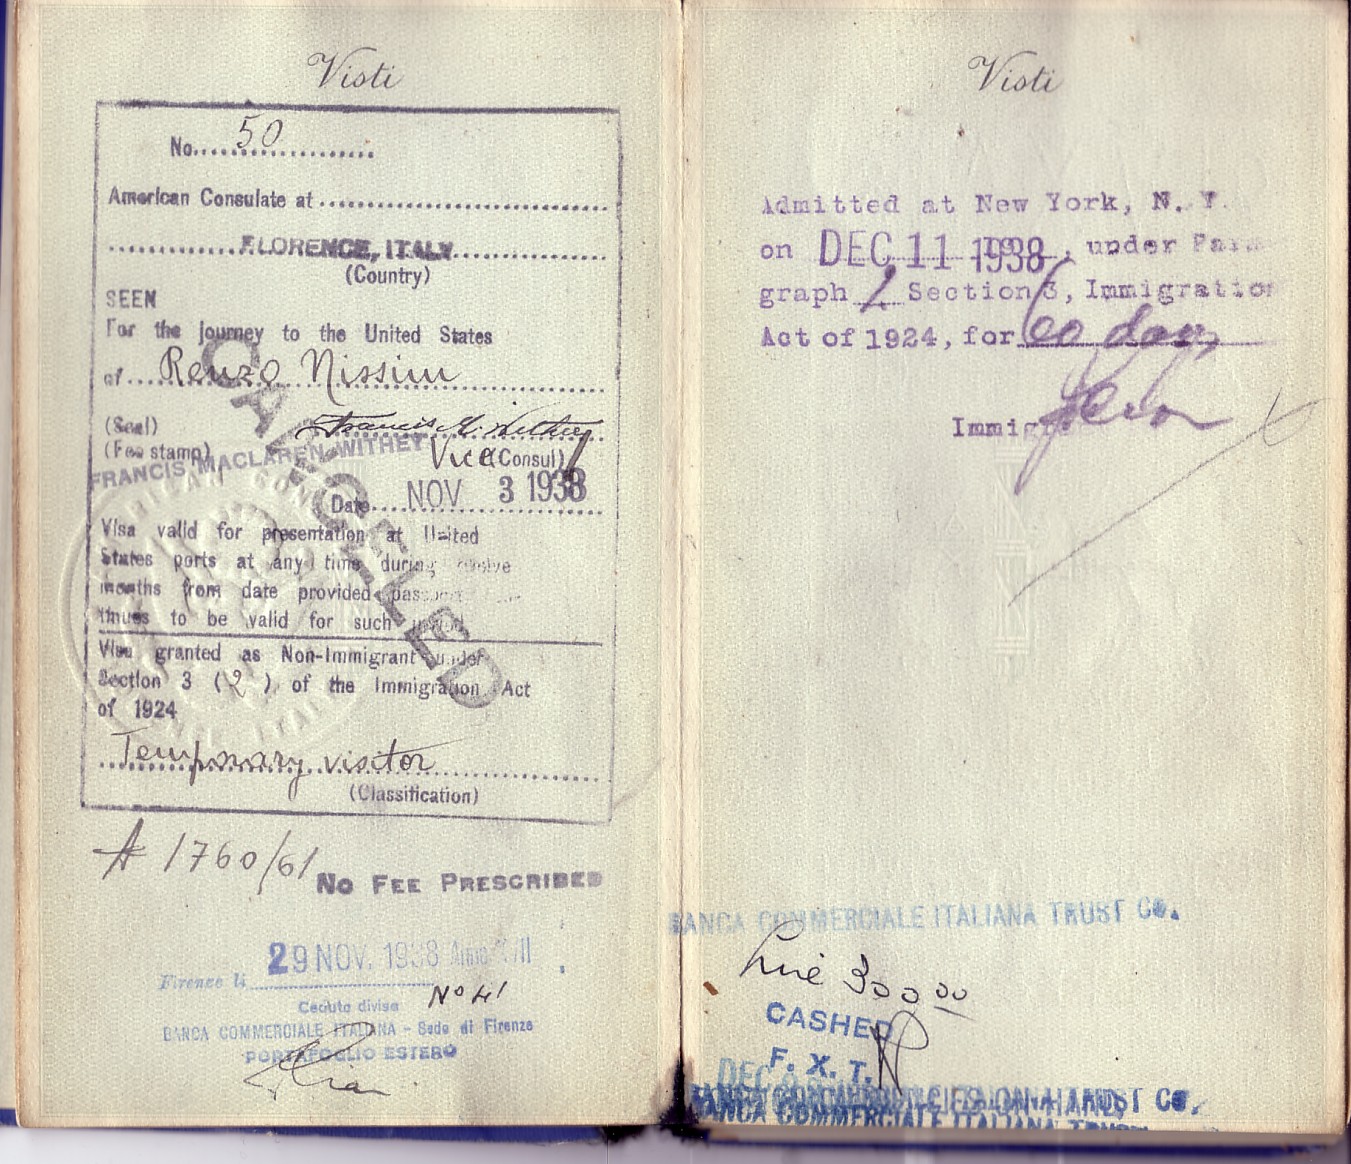 Visti
No. 50
American Consulate at
FLORENCE, ITALY
(Country)
SEEN
For the journey to the United States
of Renzo Nissim
(Seal)
(Fee stamp)
FRANCIS MACLAREN WITHEY
Vice (Consul)
Date NOV 3 1938
CANCELLED
Visa valid for presentation at United
States ports at any time during twelve
months from date provided passport
tinues to be valid for such period
Visa granted as Non-Immigrant under
Section 3 (2), of the Immigration Act
of 1924
Temporary visitor
(Classification)
A 1760/61
NO FEE PRESCRIBED
29 NOV. 1938 Anno XVII
Firenze li
No 41
Ceduto divise
BANCA COMMERCIALE ITALIANA - Sede di Firenze
PORTAFOGLIO ESTERO
Visti
Admitted at New York, N. Y.
on DEC 11 1938, under Para
graph 2 Section 3, Immigration
Act of 1924, for 60 days
Immigr
BANCA COMMERCIALE ITALIANA TRUST CO.
Lire 300 00
CASHED
F. X. T.
DEC
BANCA COMMERCIALE ITALIANA TRUST CO.
BANCA COMMERCIALE ITALIANA TRUST